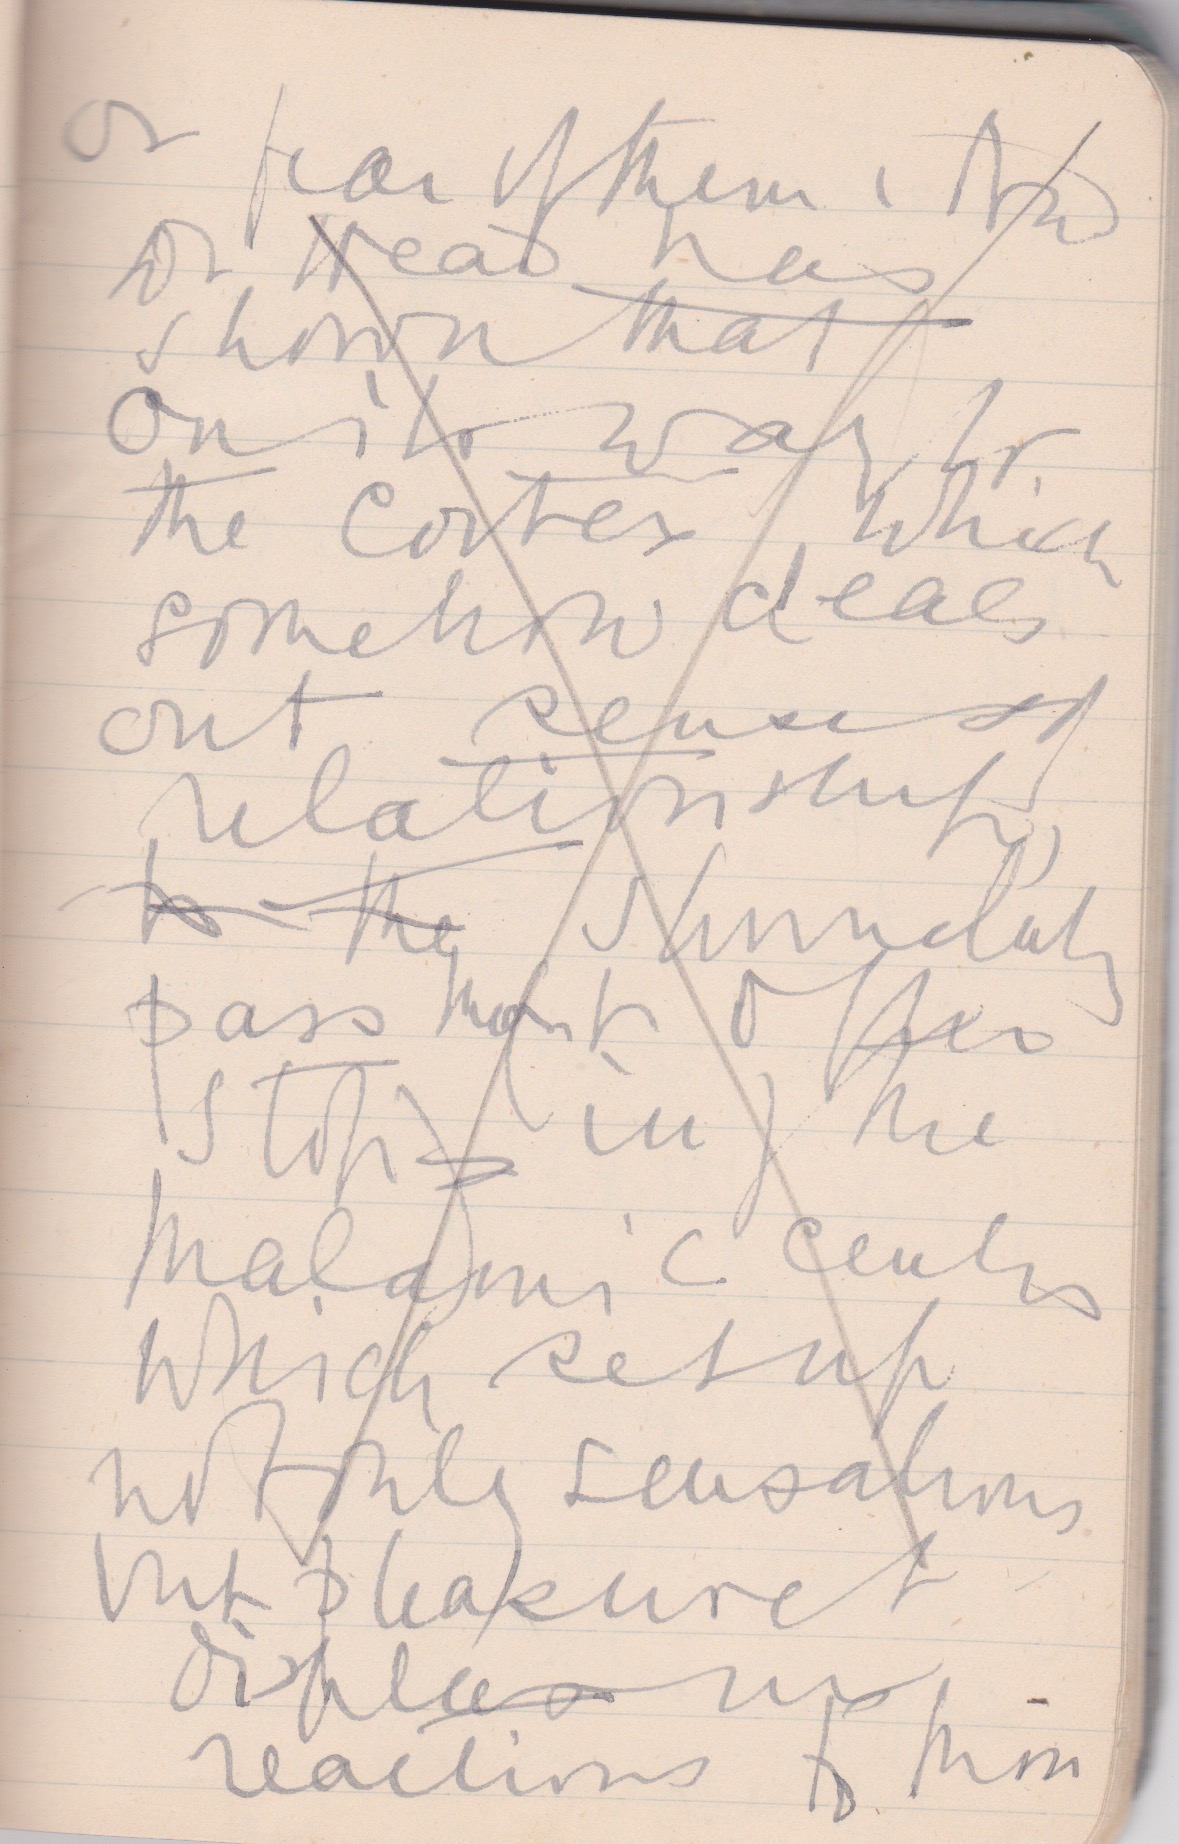 or fear of them. Now
Dr Head has
shown that
on its way to
the cortex which
somehow deals
out sense of
relationship,
to the stimuli
pass that offers
stops in the
thalamic centres
which set up
not only sensations
but pleasure &
displeasure
reactions to them